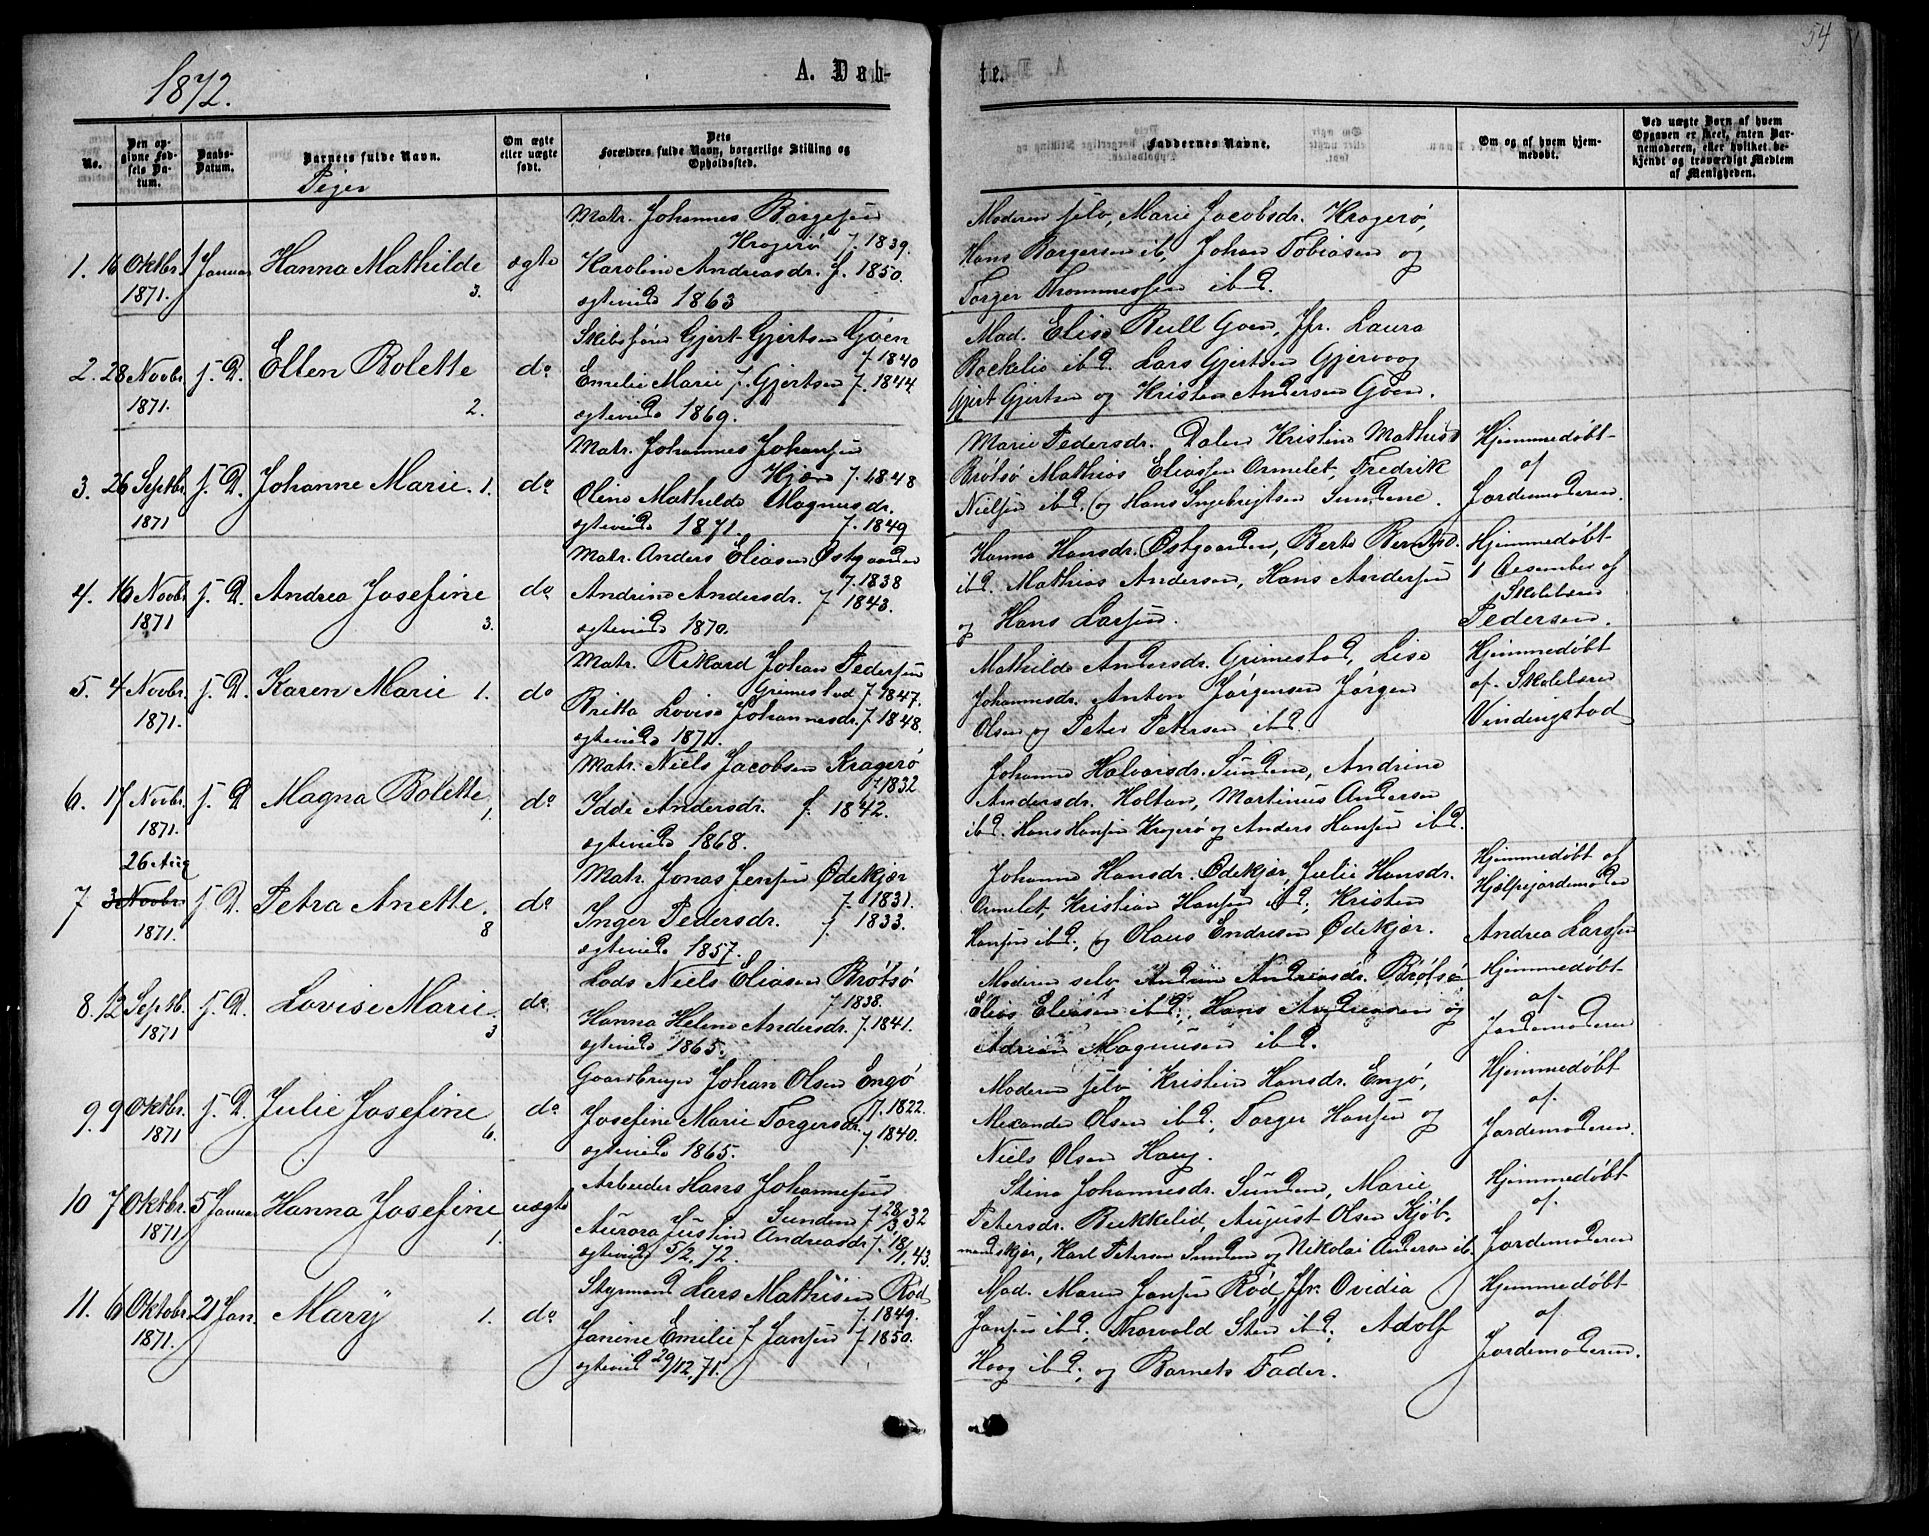 54
1872.
A. Døb-
te.
No.
Den opgivne Fødsels Datum.
Daabs-Datum.
Barnets fulde Navn.
Piger
Om ægte eller uægte født.
Dets Forældres fulde Navn, borgerlige Stilling og Opholdssted.
Faddernes Navne.
Om og af hvem hjemmedøbt.
Ved uægte Børn af hvem Opgaven er skeet, enten Barnemoderen, eller hvilket bekjendt og troværdigt Medlem af Menigheden.
1. 16 Oktbr. 1871. 1 Januar Hanna Mathilde 3. ægte
Matr. Johannes Børgesen
Kragerø f. 1839.
Karoline Andreasdr. f. 1850.
ægteviede 1863
Moderen selv, Marie Jacobsdr. Kragerø,
Hans Børgersen ib, Johan Tobiasen og
Torger Thommessen ibd.
2. 28 Novbr. 1871. s. D. Ellen Bolette 2. do
Skibsfører Gjert Gjertsen Goen
f. 1840
Emelie Marie f. Gjertsen f. 1844
ægteviede 1869.
Mad. Elise Bull Goen, Jfr. Laura
Rockelio ibd. Lars Gjertsen Gjervaag
Gjert Gjertsen og Kristen Andersen Goen.
3. 26 Septbr. 1871 s. D. Johanne Marie. 1. do
Matr. Johannes Johansen
f. 1848
Oline Mathilde Magnusdr.
ægteviede 1871. f. 1849
Marie Pedersdr. Dalen Kristine Mathisd
Brøtsø Mathias Eliassen Ormelet, Fredrik
Nielsen ibd. og Hans Ingebrigtsen Sundene.
Hjemmedøbt
af
Jordemoderen.
4. 16 Novbr. 1871 s. D. Andrea Josefine 3. do
Matr. Anders Eliasen Østgaarden
f. 1838
Andrine Andersdr. f. 1843.
ægteviede 1870.
Hanna Hansdr. Østgaarden, Berte Berntsd.
ibd. Mathias Andersen, Hans Andersen
og Hans Larsen.
Hjemmedøbt
1 Desember af
Skolelærer
Pedersen.
5. 4 Novbr. 1871. s. D. Karen Marie 1. do
Matr. Rikard Johan Pedersen
Grimestad f. 1847.
Britta Lovise Johannesdr. f. 1848.
ægteviede 1871.
Mathilde Andersdr. Grimestad, Lise
Johannesdr. Anton Jørgensen Jørgen
Olsen og Peter Petersen ibd.
Hjemmedøbt
af Skolelærer
Vindingstad
6. 17 Novbr. 1871. s. D. Magna Bolette 1. do
Matr. Niels Jacobsen Kragerø
f. 1832
Idde Andersdr. f. 1842.
ægteviede 1868.
Johanne Halvorsdr. Sundene, Andrine
Andersdr. Holtan, Martinus Andersen
ibd. Hans Hansen Kragerø og Anders Hansen ibd.
7 26 Aug 3 Novbr. 1871. s. D. Petra Anette. 8 do
Matr. Jonas Jensen Ødekjær
f. 1831.
Inger Pedersdr. f. 1833.
ægteviede 1857.
Johanne Hansdr. Ødekjær, Julie Hansdr.
Ormelet, Kristian Hansen ibd; Kristen
Hansen ibd; og Olaus Endresen Ødekjær.
Hjemmedøbt af
Hjælpejordemoderen
Andrea Larssen
8. 12 Septb. 1871 s. D. Lovise Marie. 3 do
Lods Niels Eliasen Brøtsø
f. 1838.
Hanna Helene Andersdr. f. 1841.
ægteviede 1865.
Moderen selv Andrea Andreasdr. Brøtsø
Elias Eliasen ibd; Hans Andreasen og
Adrian Magnusen ibd.
Hjemmedøbt
af
Jordemoderen
9. 9 Oktbr. 1871 s. D. Julie Josefine 6. do
Gaardbruger Johan Olsen Engø
f. 1822.
Josefine Marie Torgersdr. f. 1840.
ægteviede 1865.
Moderen selv Kristine Hansdr. Engø,
Alexander Olsen ibd; Torger Hansen og
Niels Olsen Haug.
Hjemmedøbt
af
Jordemoderen.
10 7 Oktbr. 1871 5 Januar Hanna Josefine 1. uægte
Arbeider Hans Johannesen
Sundene f. 28/3 32
Aurora Justine Andreasdr. f. 18/1. 43.
ægteviet 5/2. 72.
Stina Johannesdr. Sundene, Marie
Petersdr. Bekkelid, August Olsen Kjøb-
mandskjær, Karl Petersen Sundene og Nikolai Andersen ib.
Hjemmedøbt
af
Jordemoderen
11. 6 Oktobr. 1871. 21 Jan. Mary 1. do
Styrmand Lars Mathisen Rød
f. 1849.
Janine Emilie f Jansen f. 1850.
ægteviet 29/12, 71.
Mad. Maren Jansen Rød, Jfr. Ovidia
Jansen ibd; Thorvald Sten ibd; Adolf
Haag ibd; og Barnets Fader.
Hjemmedøbt
af
Jordemoderen.